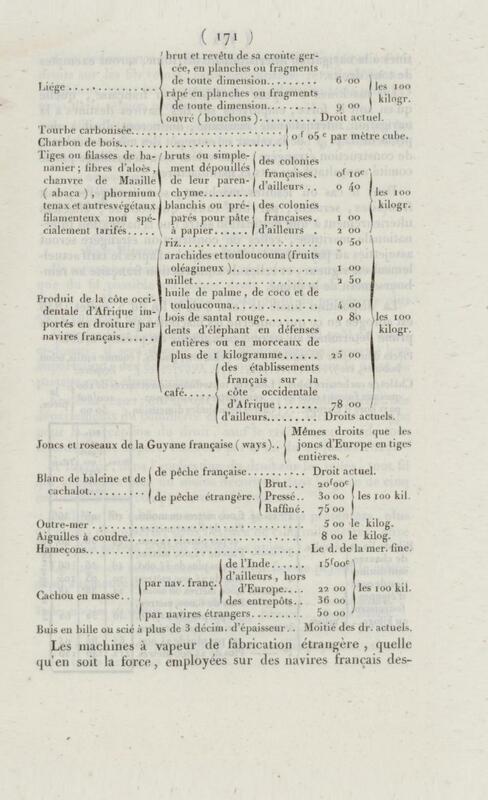 ( 171 )
brut et revêtu de sa croûte ger-
cée, en planches ou fragments
de toute dimension......... 6 00
Liége ................ les 100
râpé en planches ou fragments kilogr.
de toute dimension......... 9 00
ouvré ( bouchons )........... Droit actuel.
Tourbe carbonisée........................
Charbon de bois........................ 0 f 05 c par mètre cube.
Tiges ou filasses de ba- bruts ou simple- des colonies
nanier ; fibres d'aloès, ment dépouillés françaises. 0f 10c
chanvre de Manille de leur paren- d'ailleurs .. 0 40 les 100
( abaca ), phormium chyme........ kilogr.
tenax et autres végétaux blanchis ou pré- des colonies
filamenteux non spé- parés pour pâte françaises. 1 00
cialement tarifés..... à papier...... d'ailleurs . 2 00
riz........................ 0 50
arachides et touloucouna (fruits
oléagineux )............... 1 00
millet..................... 2 50
huile de palme, de coco et de
Produit de la côte occi- touloucouna............... 4 00
dentale d'Afrique im- bois de santal rouge......... 0 80 les 100
portés en droiture par dents d'éléphant en défenses kilogr.
navires français...... entières ou en morceaux de
plus de 1 kilogramme...... 25 00
des établissements
français sur la
café..... côte occidentale
d'Afrique ....... 78 00
d'ailleurs........ Droits actuels.
Mêmes droits que les
Joncs et roseaux de la Guyane française ( ways ).. joncs d'Europe en tiges
entières.
Blanc de baleine et de de pêche française.......... Droit actuel.
cachalot......... Brut... 20f00c
de pêche étrangère. Pressé.. 30 00 les 100 kil.
Raffiné. 75 00
Outre-mer ................................ 5 00 le kilog.
Aiguilles à coudre............................ 8 00 le kilog.
Hameçons................................ Le d. de la mer. fine.
de l'Inde...... 15f00c
par nav. franç. d'ailleurs, hors
d'Europe.... 22 00 les 100 kil.
Cachou en masse.. des entrepôts.. 36 00
par navires étrangers......... 50 00
Buis en bille ou scié à plus de 3 décim. d'épaisseur.. Moitié des dr. actuels.
Les machines à vapeur de fabrication étrangère, quelle
qu'en soit la force, employées sur des navires français des-